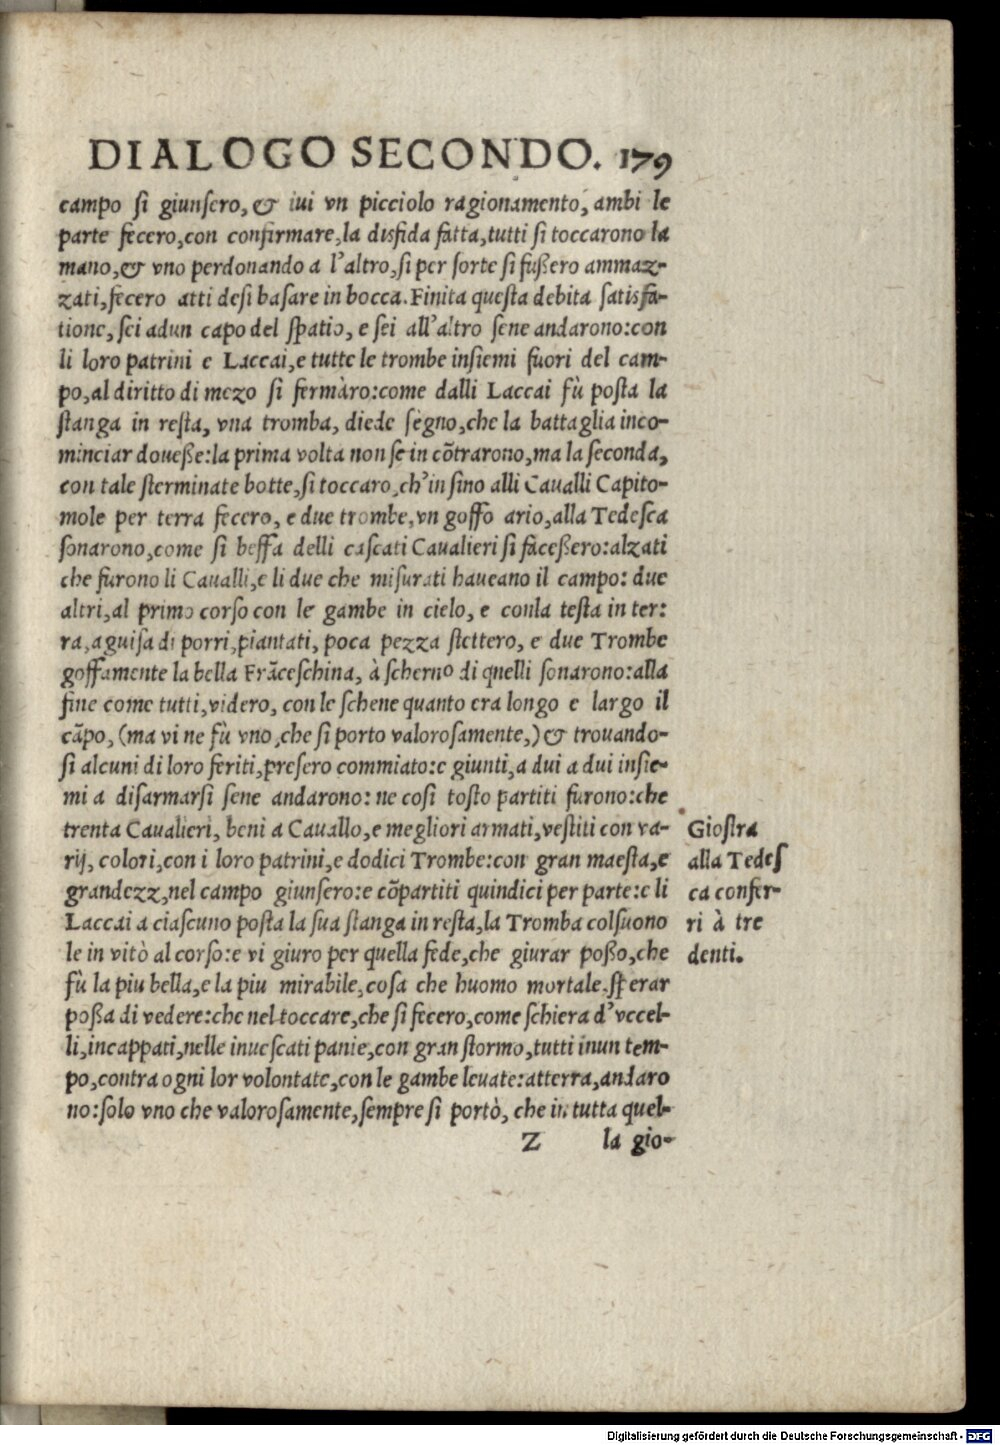 DIALOGO SECONDO. 179
campo si giunsero, & iui vn picciolo ragionamento, ambi le
parte fecero, con confirmare, la disfida fatta, tutti si toccarono la
mano, & vno perdonando a l'altro, si per sorte si fußero ammaz-
zati, fecero atti desi basare in bocca. Finita questa debita satisfa-
tione, sei adun capo del spatio, e sei all'altro sene andarono: con
li loro patrini e Laccai, e tutte le trombe insiemi fuori del cam-
po, al diritto di mezo si fermàro: come dalli Laccai fù posta la
stanga in resta, vna tromba, diede segno, che la battaglia inco-
minciar doueße: la prima volta non se in cõtrarono, ma la seconda,
con tale sterminate botte, si toccaro, ch'in sino alli Caualli Capito-
mole per terra fecero, e due trombe, vn goffo ario, alla Tedesca
sonarono, come si beffa delli cascati Caualieri si faceßero: alzati
che furono li Caualli, e li due che misurati haueano il campo: due
altri, al primo corso con le gambe in cielo, e conla testa in ter:
ra, a guisa di porri, piantati, poca pezza stettero, e due Trombe
goffamente la bella Frãceschina, à scherno di quelli sonarono: alla
fine come tutti, videro, con le schene quanto era longo e largo il
cãpo, (ma vi ne fù vno, che si porto valorosamente,) & trouando-
si alcuni di loro feriti, presero commiato: e giunti, a dui a dui insie-
mi a disarmarsi sene andarono: ne così tosto partiti furono: che
trenta Caualieri, beni a Cauallo, e megliori armati, vestiti con va-
rij, colori, con i loro patrini, e dodici Trombe: con gran maesta, e
grandezz, nel campo giunsero: e cõpartiti quindici per parte: e li
Laccai a ciascuno posta la sua stanga in resta, la Tromba colsuono
le in vitò al corso: e vi giuro per quella fede, che giurar poßo, che
fù la piu bella, e la piu mirabile, cosa che huomo mortale, sperar
poßa di vedere: che nel toccare, che si fecero, come schiera d'vccel-
li, incappati, nelle inuescati panie, con gran stormo, tutti inun tem-
po, contra ogni lor volontate, con le gambe leuate: atterra, andaro
no: solo vno che valorosamente, sempre si portò, che in tutta quel-
Z la gio-
Giostra
alla Tedes
ca con fer-
ri à tre
denti.
Digitalisierung gefördert durch die Deutsche Forschungsgemeinschaft - DFG